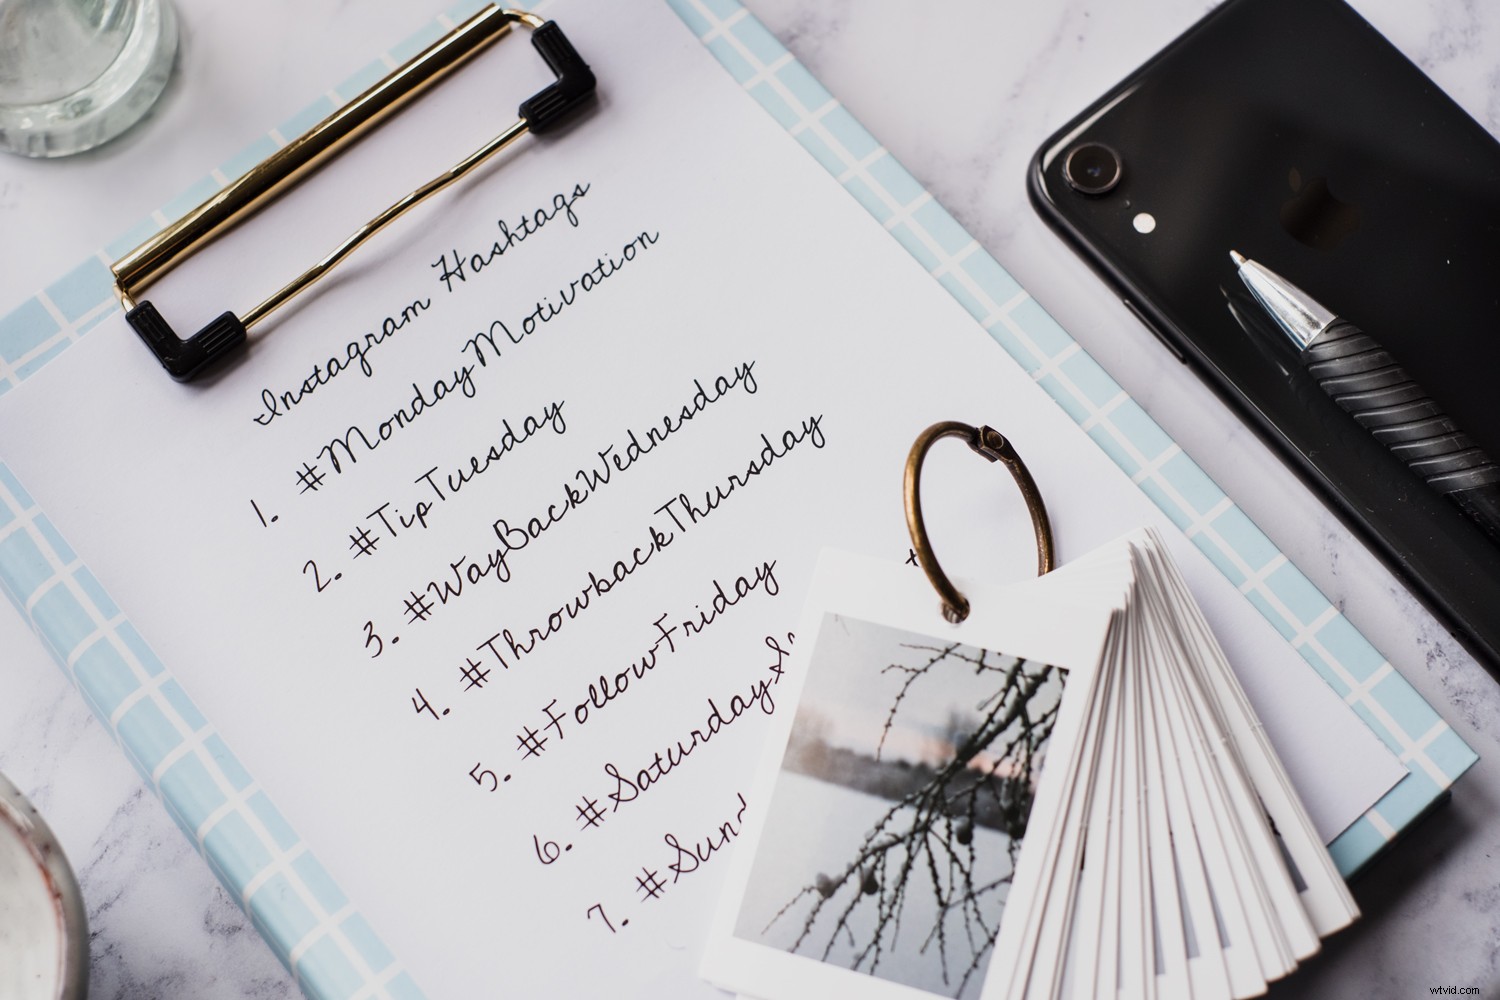 Instagram Hashtags
1. #MondayMotivation
2. #TipTuesday
3. #WayBackWednesday
4. #ThrowbackThursday
5. #FollowFriday
6.
7.
wtvid.com